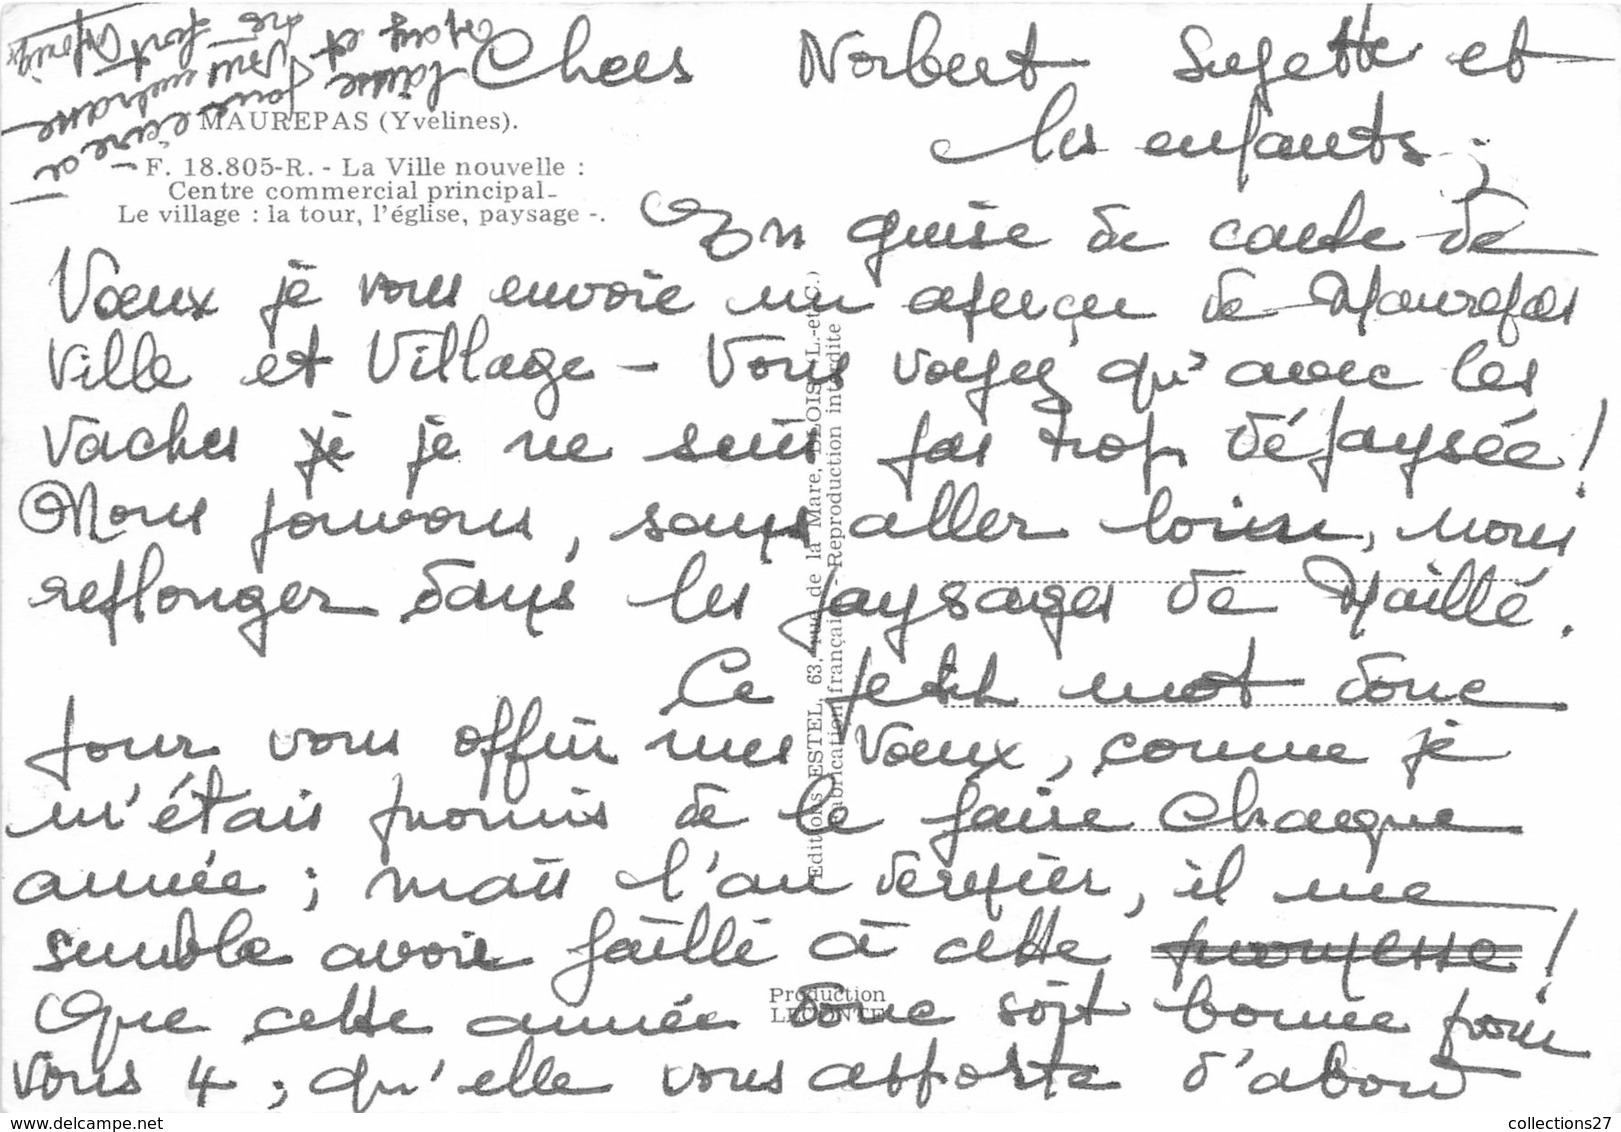 Chers Norbert Suzette et
les enfants,
MAUREPAS (Yvelines).
F. 18.805-R. - La Ville nouvelle :
Centre commercial principal-
Le village : la tour, l'église, paysage -.
En guise de carte de
Vœux je vous envoie un aperçu de Maurepas
Ville et Village - Vous voyez qu'avec les
vaches je je ne suis pas trop dépaysée !
Nous pouvons, sans aller loin, nous
replonger dans les paysages de Maillé.
Ce petit mot donc
pour vous offrir mes Vœux, comme je
m'étais promis de le faire chaque
année ; mais l'an dernier, il me
semble avoir failli à cette promesse !
Que cette année donc soit bonne pour
vous 4 ; qu'elle vous apporte d'abord
laisse pour
écrire et
vous embrasse
très fort
Editions ESTEL, 63, rue de la Mare, BLOIS (L.-et-C.)
Fabrication française - Reproduction interdite
Production
LECONTE
collections27